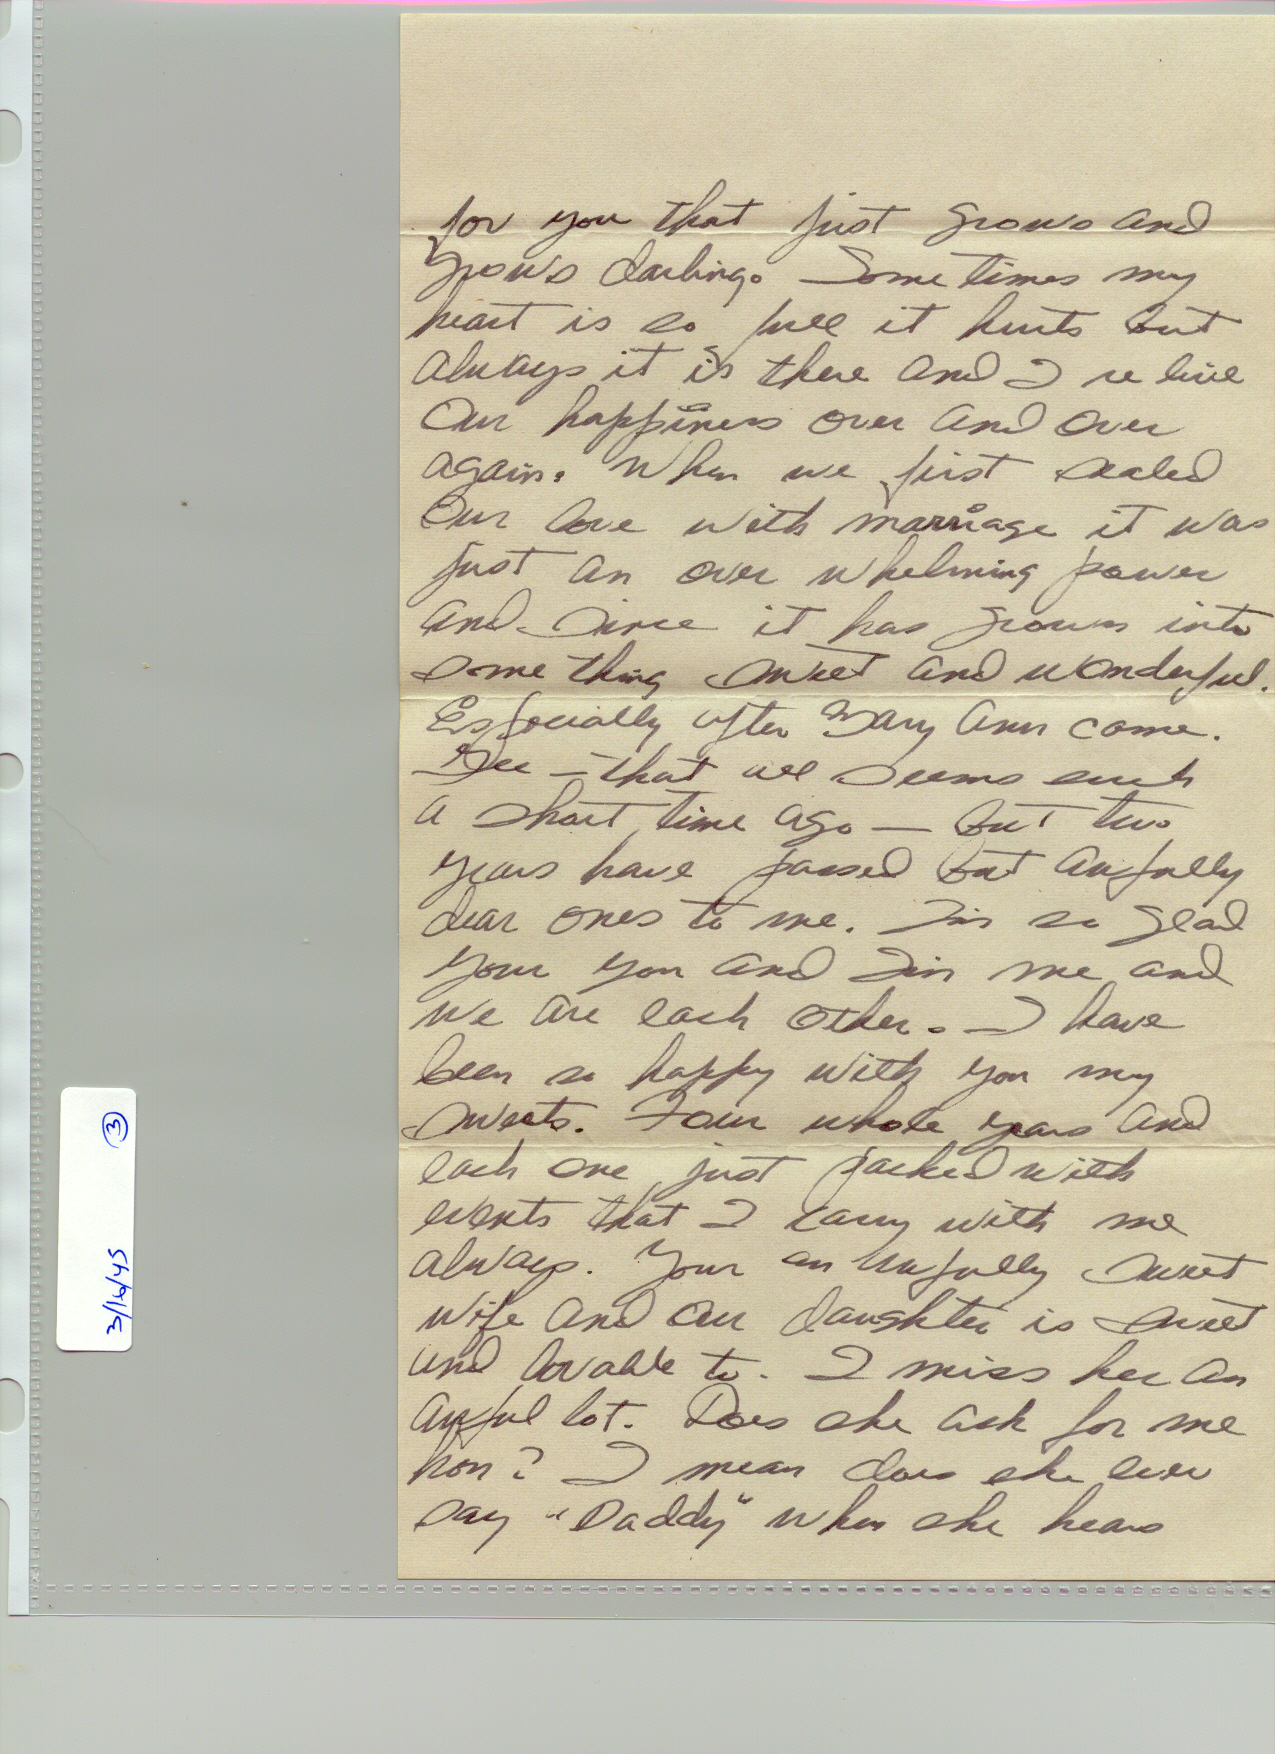 for you that just grows and
grows darling. Sometimes my
heart is so full it hurts but
always it is there and I re live
Our happiness over and over
again. When we first sealed
Our love with marriage it was
just an over whelming power
and since it has grown into
some thing sweet and wonderful.
Especially after Mary Ann came.
Gee – that all seems such
a short time ago — but two
years have passed but awfully
dear ones to me. I'm so glad
your you and I'm me and
we are each other. I have
been so happy with you my
sweets. Four whole years and
each one just packed with
events that I carry with me
always. Your an awfully sweet
wife and our daughter is sweet
and lovable to. I miss her an
awful lot. Does she ask for me
hon? I mean does she ever
say "Daddy" when she hears
3/16/45 3